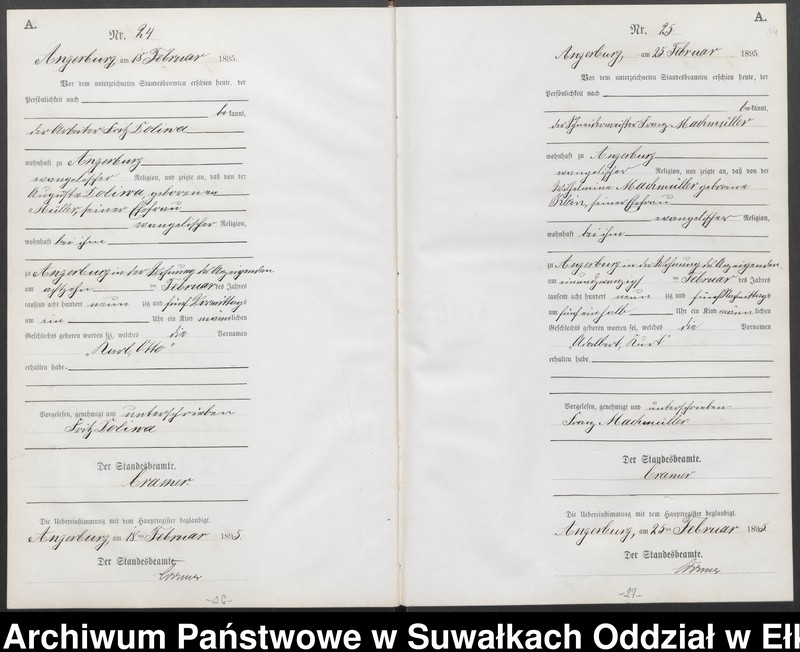 A.
Nr. 24
Angerburg, am 18 Februar 1895.
Vor dem unterzeichneten Standesbeamten erschien heute, der
Persönlichkeit nach
bekannt,
der Arbeiter Fritz Doliwa
wohnhaft zu Angerburg
evangelischer Religion, und zeigte an, daß von der
Auguste Doliwa, geborenen
Müller, seiner Ehefrau
evangelischer Religion,
wohnhaft bei ihm
zu Angerburg in der Wohnung des Anzeigenden
am achtzehn ten Februar des Jahres
tausend acht hundert neun zig und fünf Vormittags
um ein Uhr ein Kind männlichen
Geschlechts geboren worden sei, welches die Vornamen
"Karl, Otto"
erhalten habe.
Vorgelesen, genehmigt und unterschrieben
Fritz Doliwa
Der Standesbeamte.
Cramer.
Die Uebereinstimmung mit dem Hauptregister beglaubigt.
Angerburg, am 18ten Februar 1895.
Der Standesbeamte
Cramer
-26-
A.
Nr. 25
Angerburg, am 25 Februar 1895.
Vor dem unterzeichneten Standesbeamten erschien heute, der
Persönlichkeit nach
bekannt,
der Schneidermeister Franz Machmüller
wohnhaft zu Angerburg
evangelischer Religion, und zeigte an, daß von der
Wilhelmine Machmüller geborene
Klein, seiner Ehefrau
evangelischer Religion,
wohnhaft bei ihm
zu Angerburg in der Wohnung des Anzeigenden
am einundzwanzigsten Februar des Jahres
tausend acht hundert neun zig und fünf Nachmittags
um fünf einhalb Uhr ein Kind männlichen
Geschlechts geboren worden sei, welches die Vornamen
"Adalbert, Kurt"
erhalten habe.
Vorgelesen, genehmigt und unterschrieben
Franz Machmüller
Der Standesbeamte.
Cramer.
Die Uebereinstimmung mit dem Hauptregister beglaubigt.
Angerburg, am 25ten Februar 1895.
Der Standesbeamte.
Cramer
-27-
Archiwum Państwowe w Suwałkach Oddział w Ełk